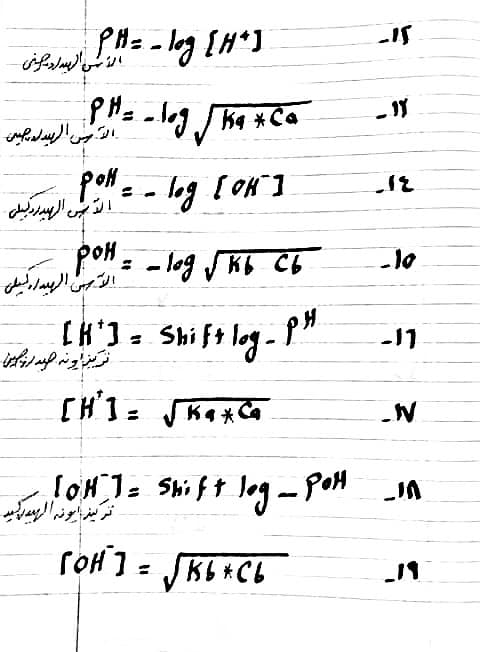 ١٢- PH = - log [H⁺]
الأس الهيدروجينى
١٣- PH = - log √Ka * Ca
الأس الهيدروجينى
١٤- POH = - log [OH⁻]
الأس الهيدروكيلى
١٥- POH = - log √Kb Cb
الأس الهيدروكيلى
١٦- [H⁺] = Shift log - PH
تركيز ايونه هيدروجين
١٧- [H⁺] = √Ka * Ca
١٨- [OH⁻] = Shift log - POH
تركيز ايونه الهيدركيد
١٩- [OH⁻] = √Kb * Cb